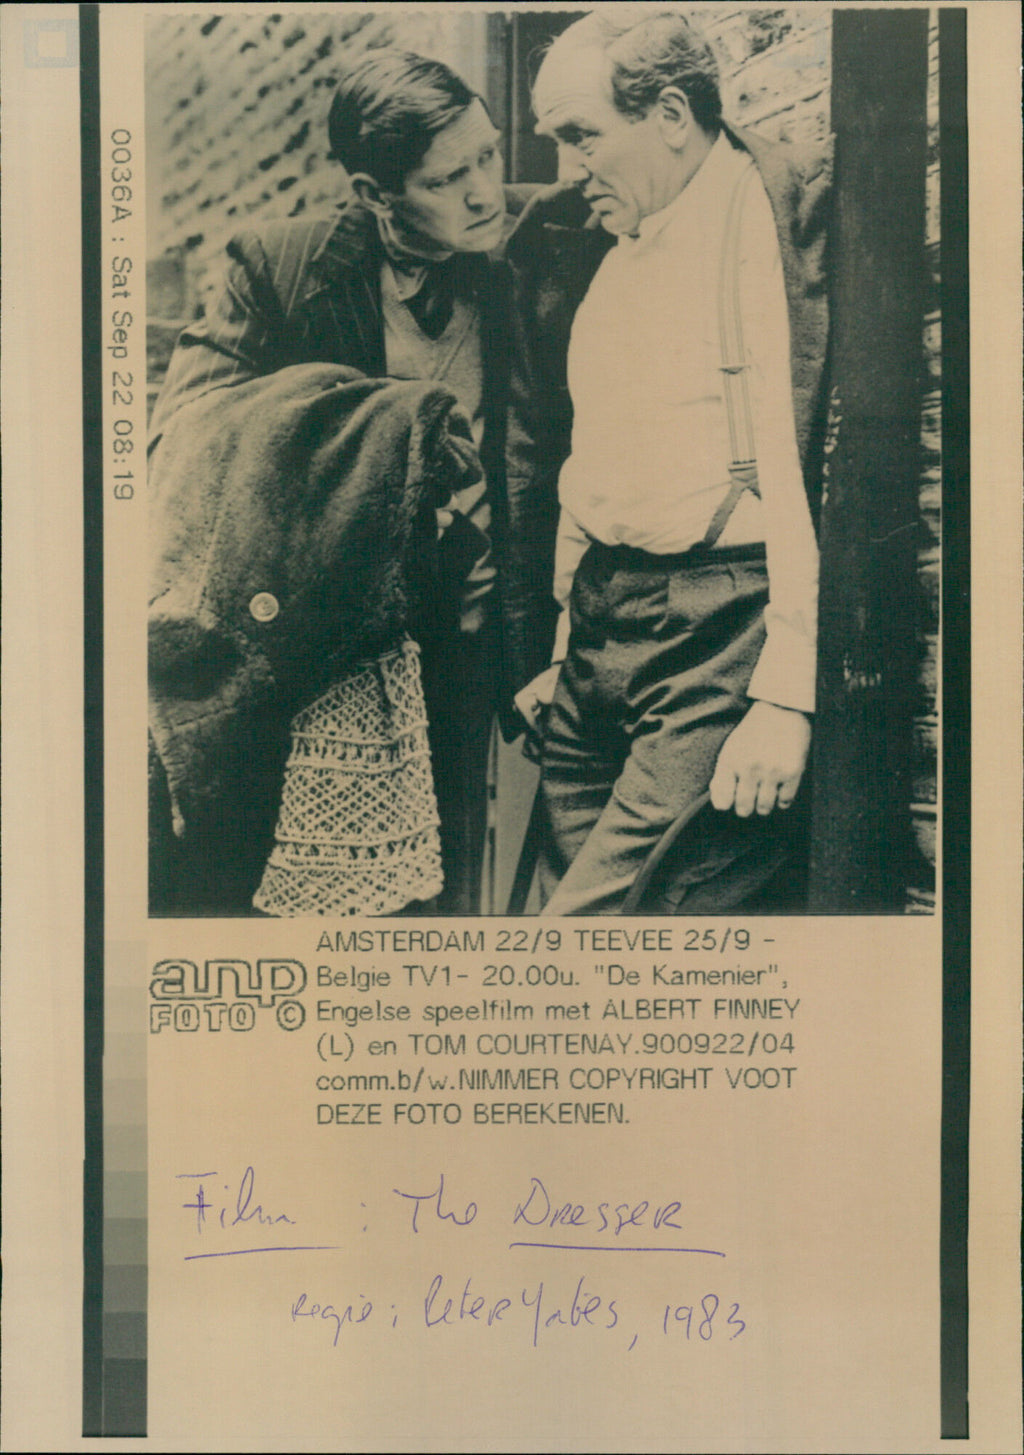 0036A : Sat Sep 22 08:19
AMSTERDAM 22/9 TEEVEE 25/9 -
anp Belgie TV1- 20.00u. "De Kamenier",
FOTO © Engelse speelfilm met ALBERT FINNEY
(L) en TOM COURTENAY.900922/04
comm.b/w.NIMMER COPYRIGHT VOOT
DEZE FOTO BEREKENEN.
Film : The Dresser
Regie : Peter Yates, 1983